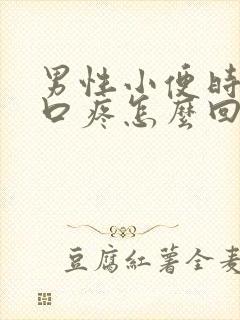 男性小便時
口疼怎麼回
豆腐紅薯全麥